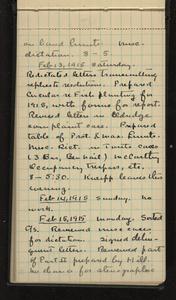 on land Penit. Misc.
dictation. 8 - 5.
Feb. 13, 1915 Saturday.
Redictated letters transmitting
replats resolutions. Prepared
Circular re Fish planting for
1915, with forms for report.
Revised letter in Eldredge
complaint case. Prepared
table of Past & Mas. Permits.
Misc. Dict. in Timite cases
( 3 Ers, Ben Hail) McCarthy
Occupancy Trespass, etc.
8 - 5:30. Knipp leaves this
evening.
Feb 14, 1915 Sunday. no
work.
Feb. 15, 1915. Monday. Sorted
C/s. Reviewed misc cases
for dictation. Signed delin-
quent letters. Reviewed part
of Part II prepared by M.M.
no chance for stenographer